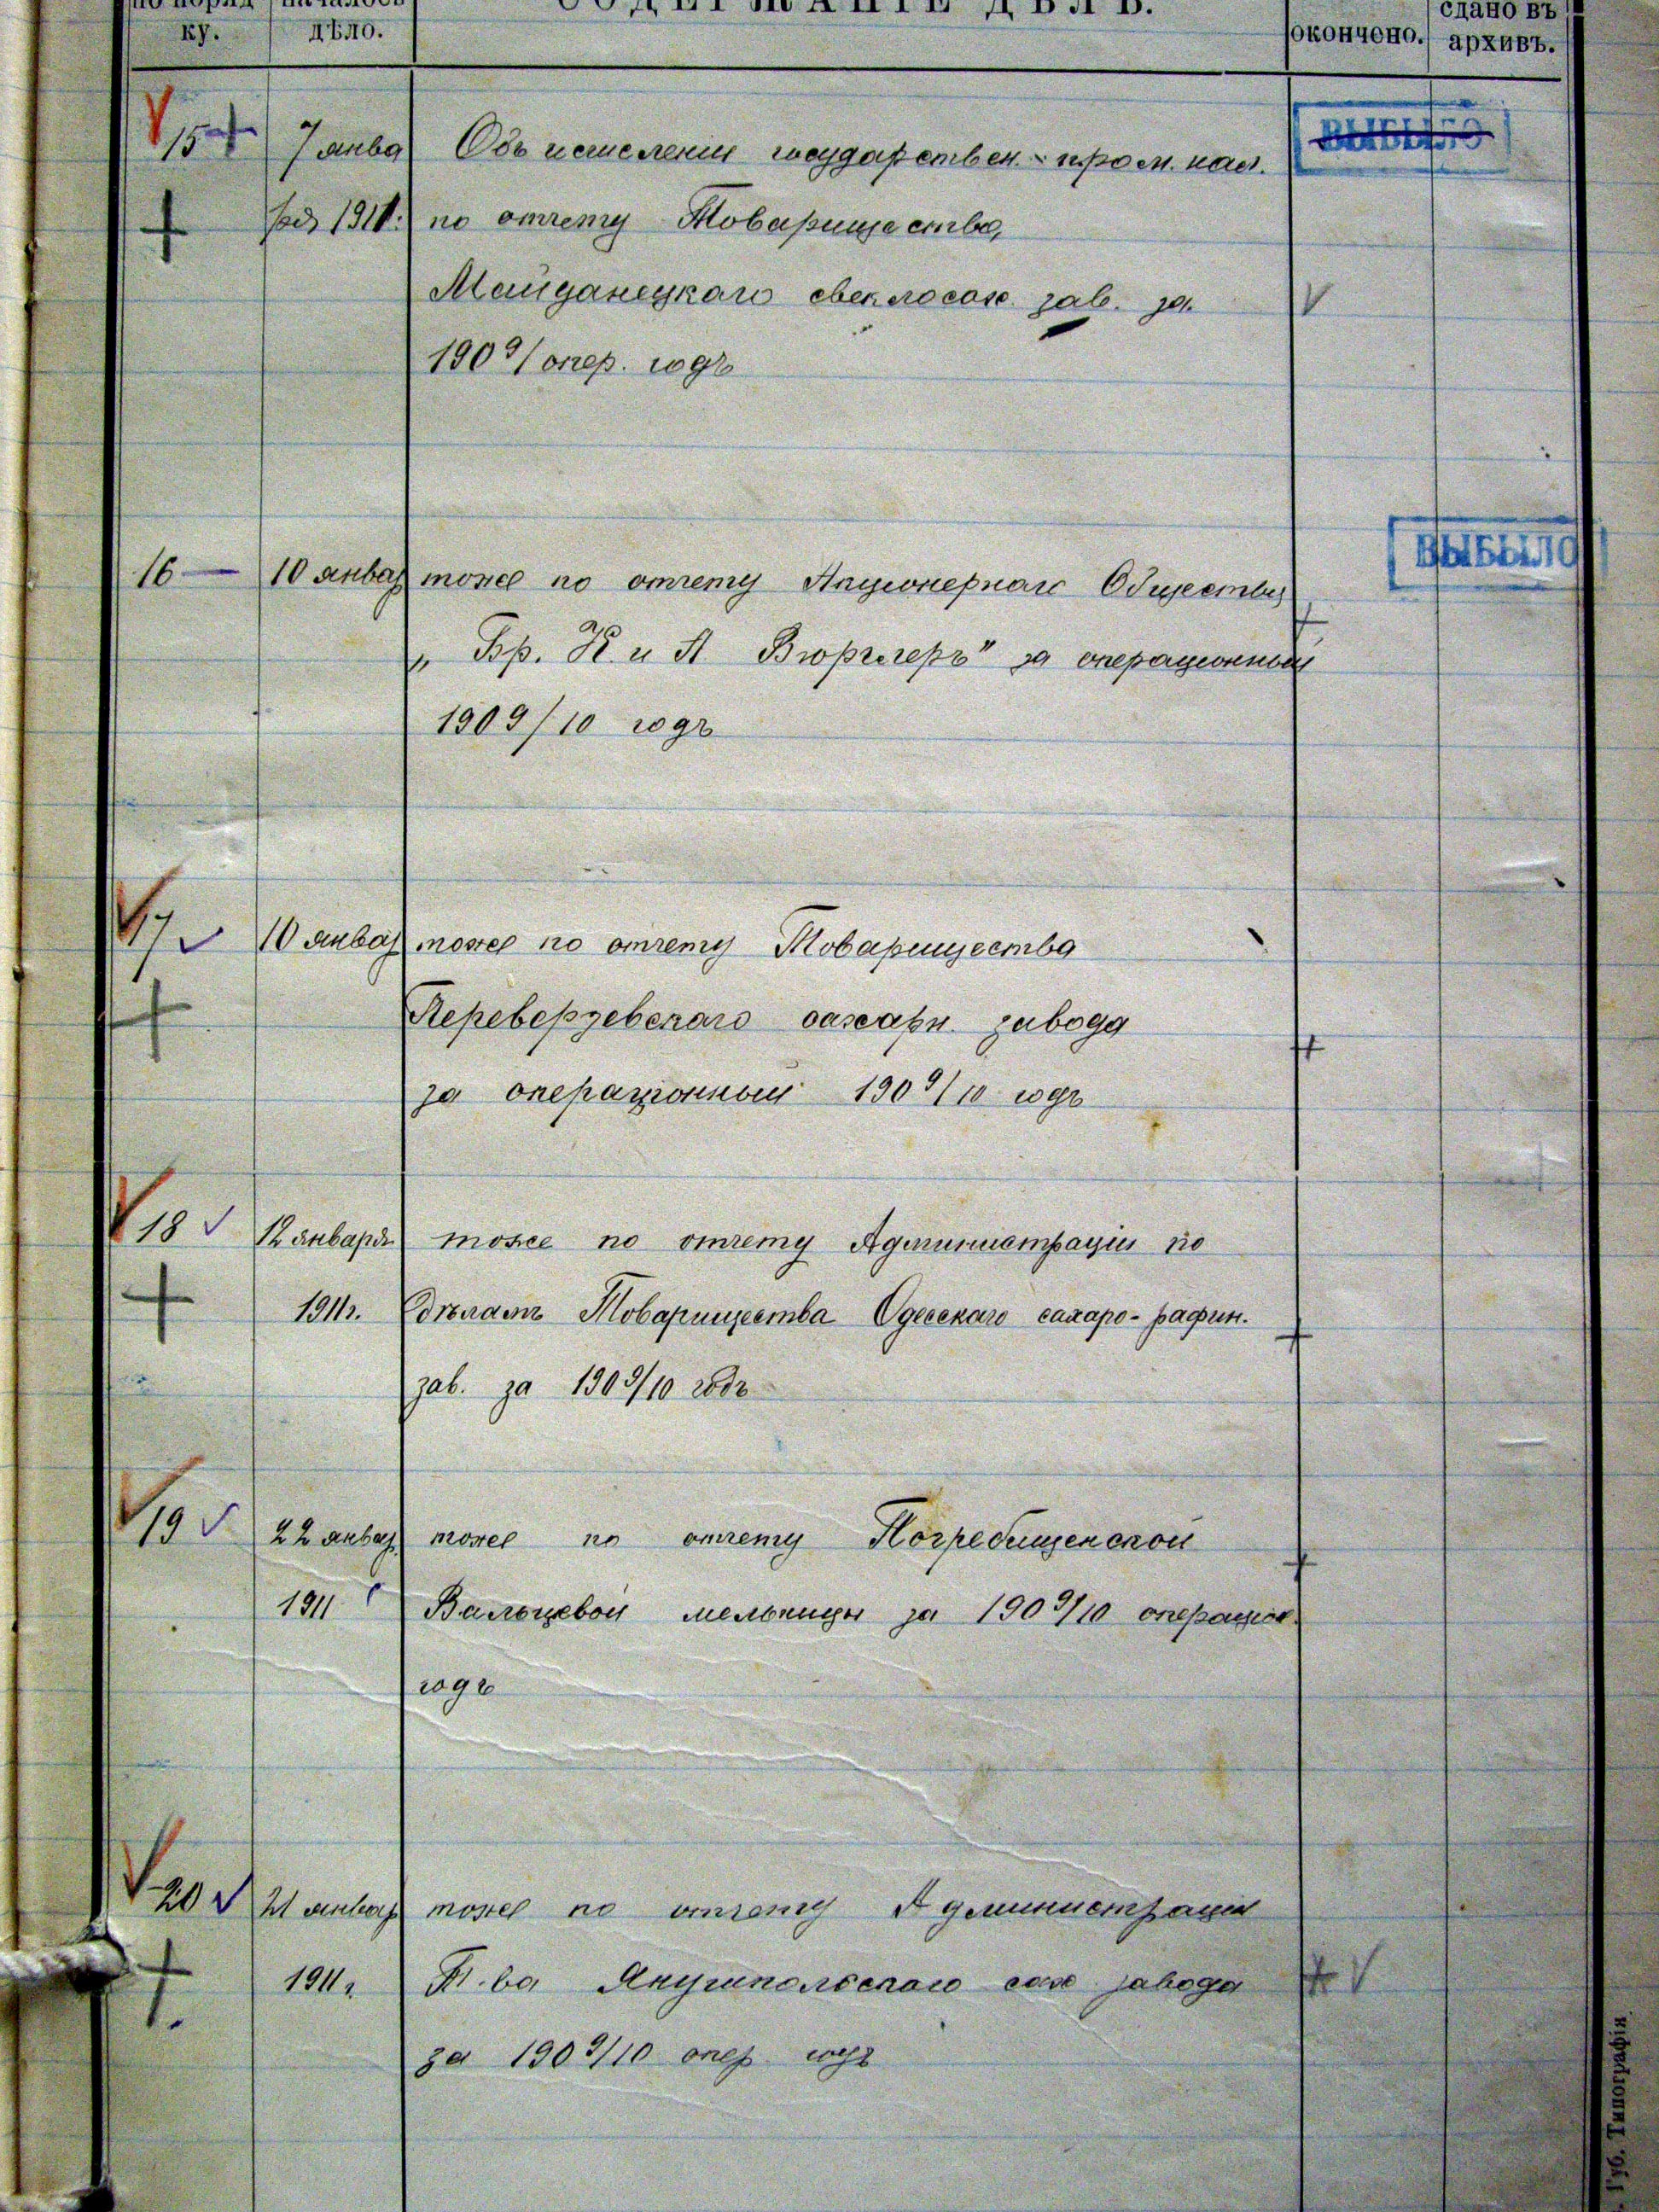 по поряд началось СОДЕРЖАНІЕ ДѢЛЪ. сдано въ
ку. дѣло. окончено. архивъ.
15 7 янва Объ исчисленіи государствен. - пром. нал. ВЫБЫЛО
ря 1911. по отчету Товарищества
Майданецкаго свеклосах. зав. за
190⁹/ опер. годъ
16 — 10 январ тоже по отчету Акціонернаго Общества ВЫБЫЛО
„ Бр. К. и А. Вюрглеръ" за операціонный
1909/10 годъ
17 10 январ тоже по отчету Товарищества
Переверзевскаго сахарн. завода
за операціонный 190⁹/10 годъ
18 12 января тоже по отчету Администраціи по
1911г. дѣламъ Товарищества Одесскаго сахаро-рафин.
зав. за 190⁹/10 годъ
19 22 январ. тоже по отчету Погребищенской
1911 Вальцевой мельницы за 190⁹/10 операціон.
годъ
20 21 январ тоже по отчету Администраціи
1911 г. Т.ва Янушпольскаго сах. завода
за 190⁹/10 опер. годъ
Губ. Типографія